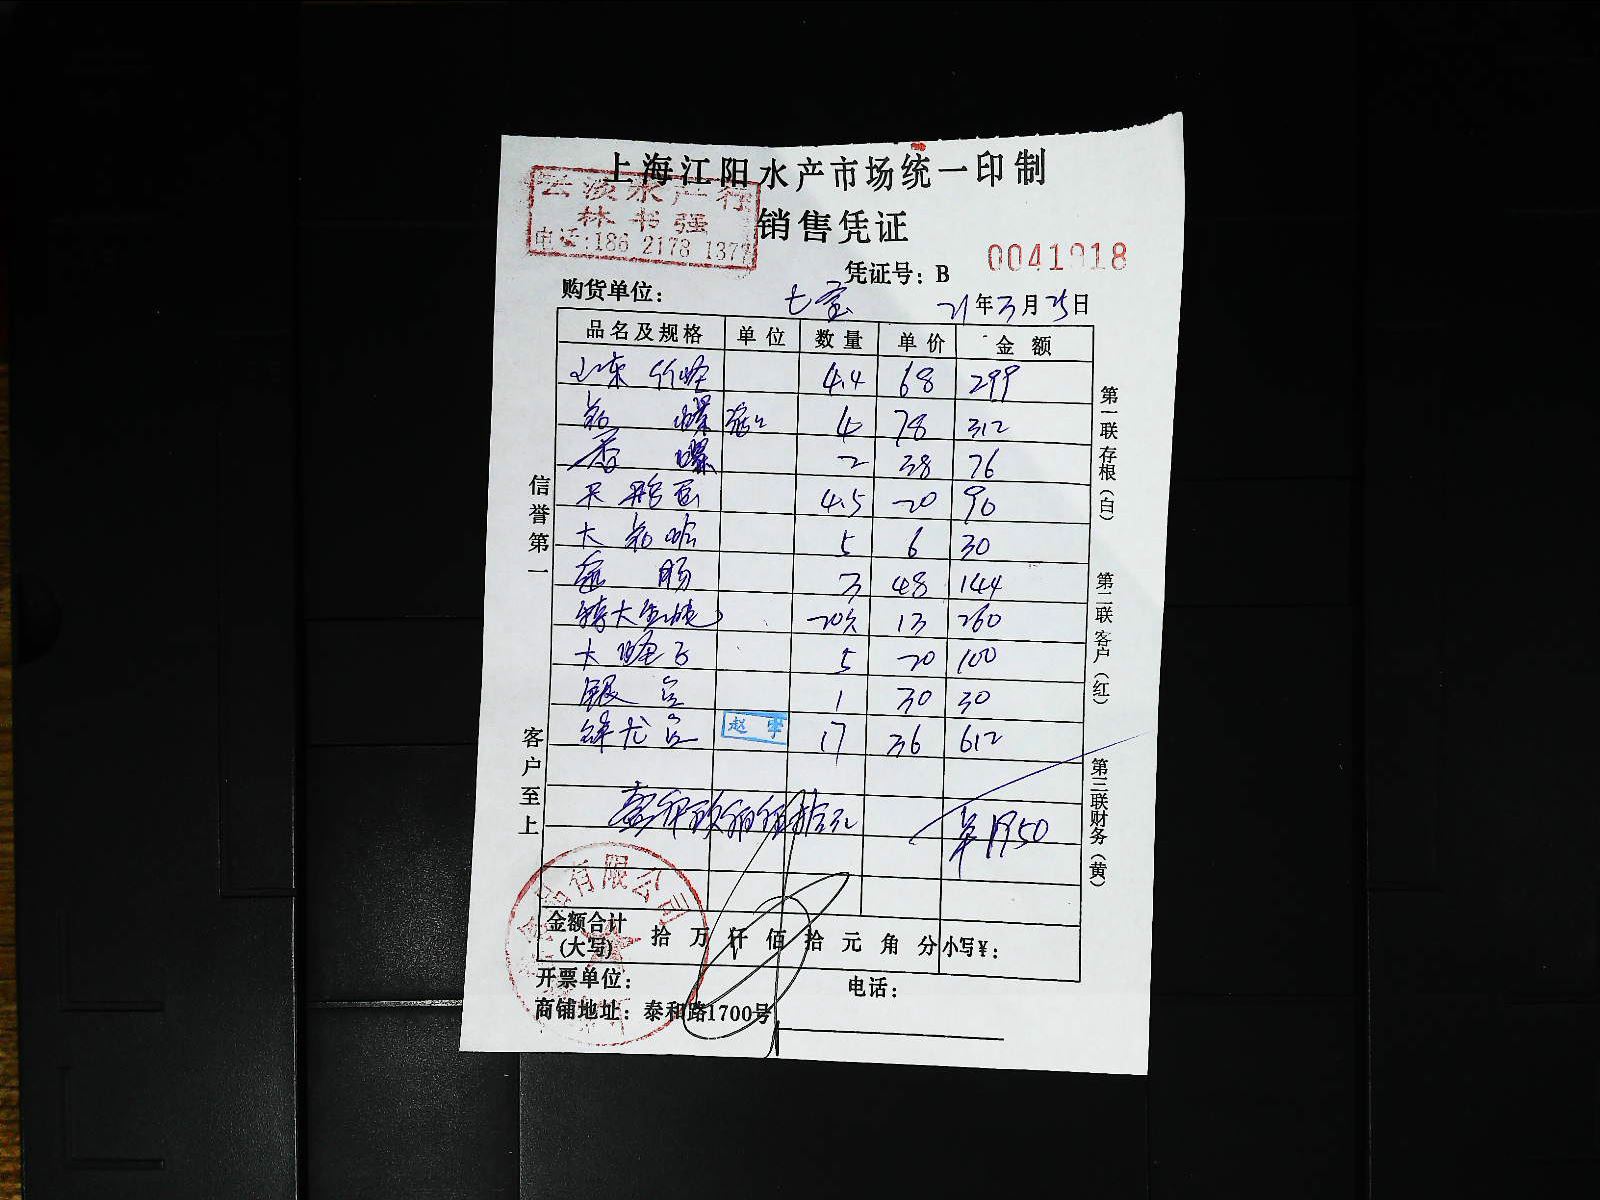 上海江阳水产市场统一印制
云淡水产行
林书强
电话:186 2178 1377
销售凭证
凭证号：B 0041918
购货单位： 七宝 21年3月25日
品名及规格 单位 数量 单价 金额
山东竹蛏 4.4 68 299
螺 4 78 312
香螺 2 38 76
4.5 20 90
大 5 6 30
肠 3 48 144
特大 20只 13 260
大 5 20 100
银 1 30 30
龙 赵 17 36 612
壹仟玖佰伍拾元 ¥1950
金额合计
(大写) 拾 万 仟 佰 拾 元 角 分 小写¥：
开票单位： 电话：
商铺地址：泰和路1700号
信誉第一
客户至上
第一联存根（白）
第二联客户（红）
第三联财务（黄）
品有限公司